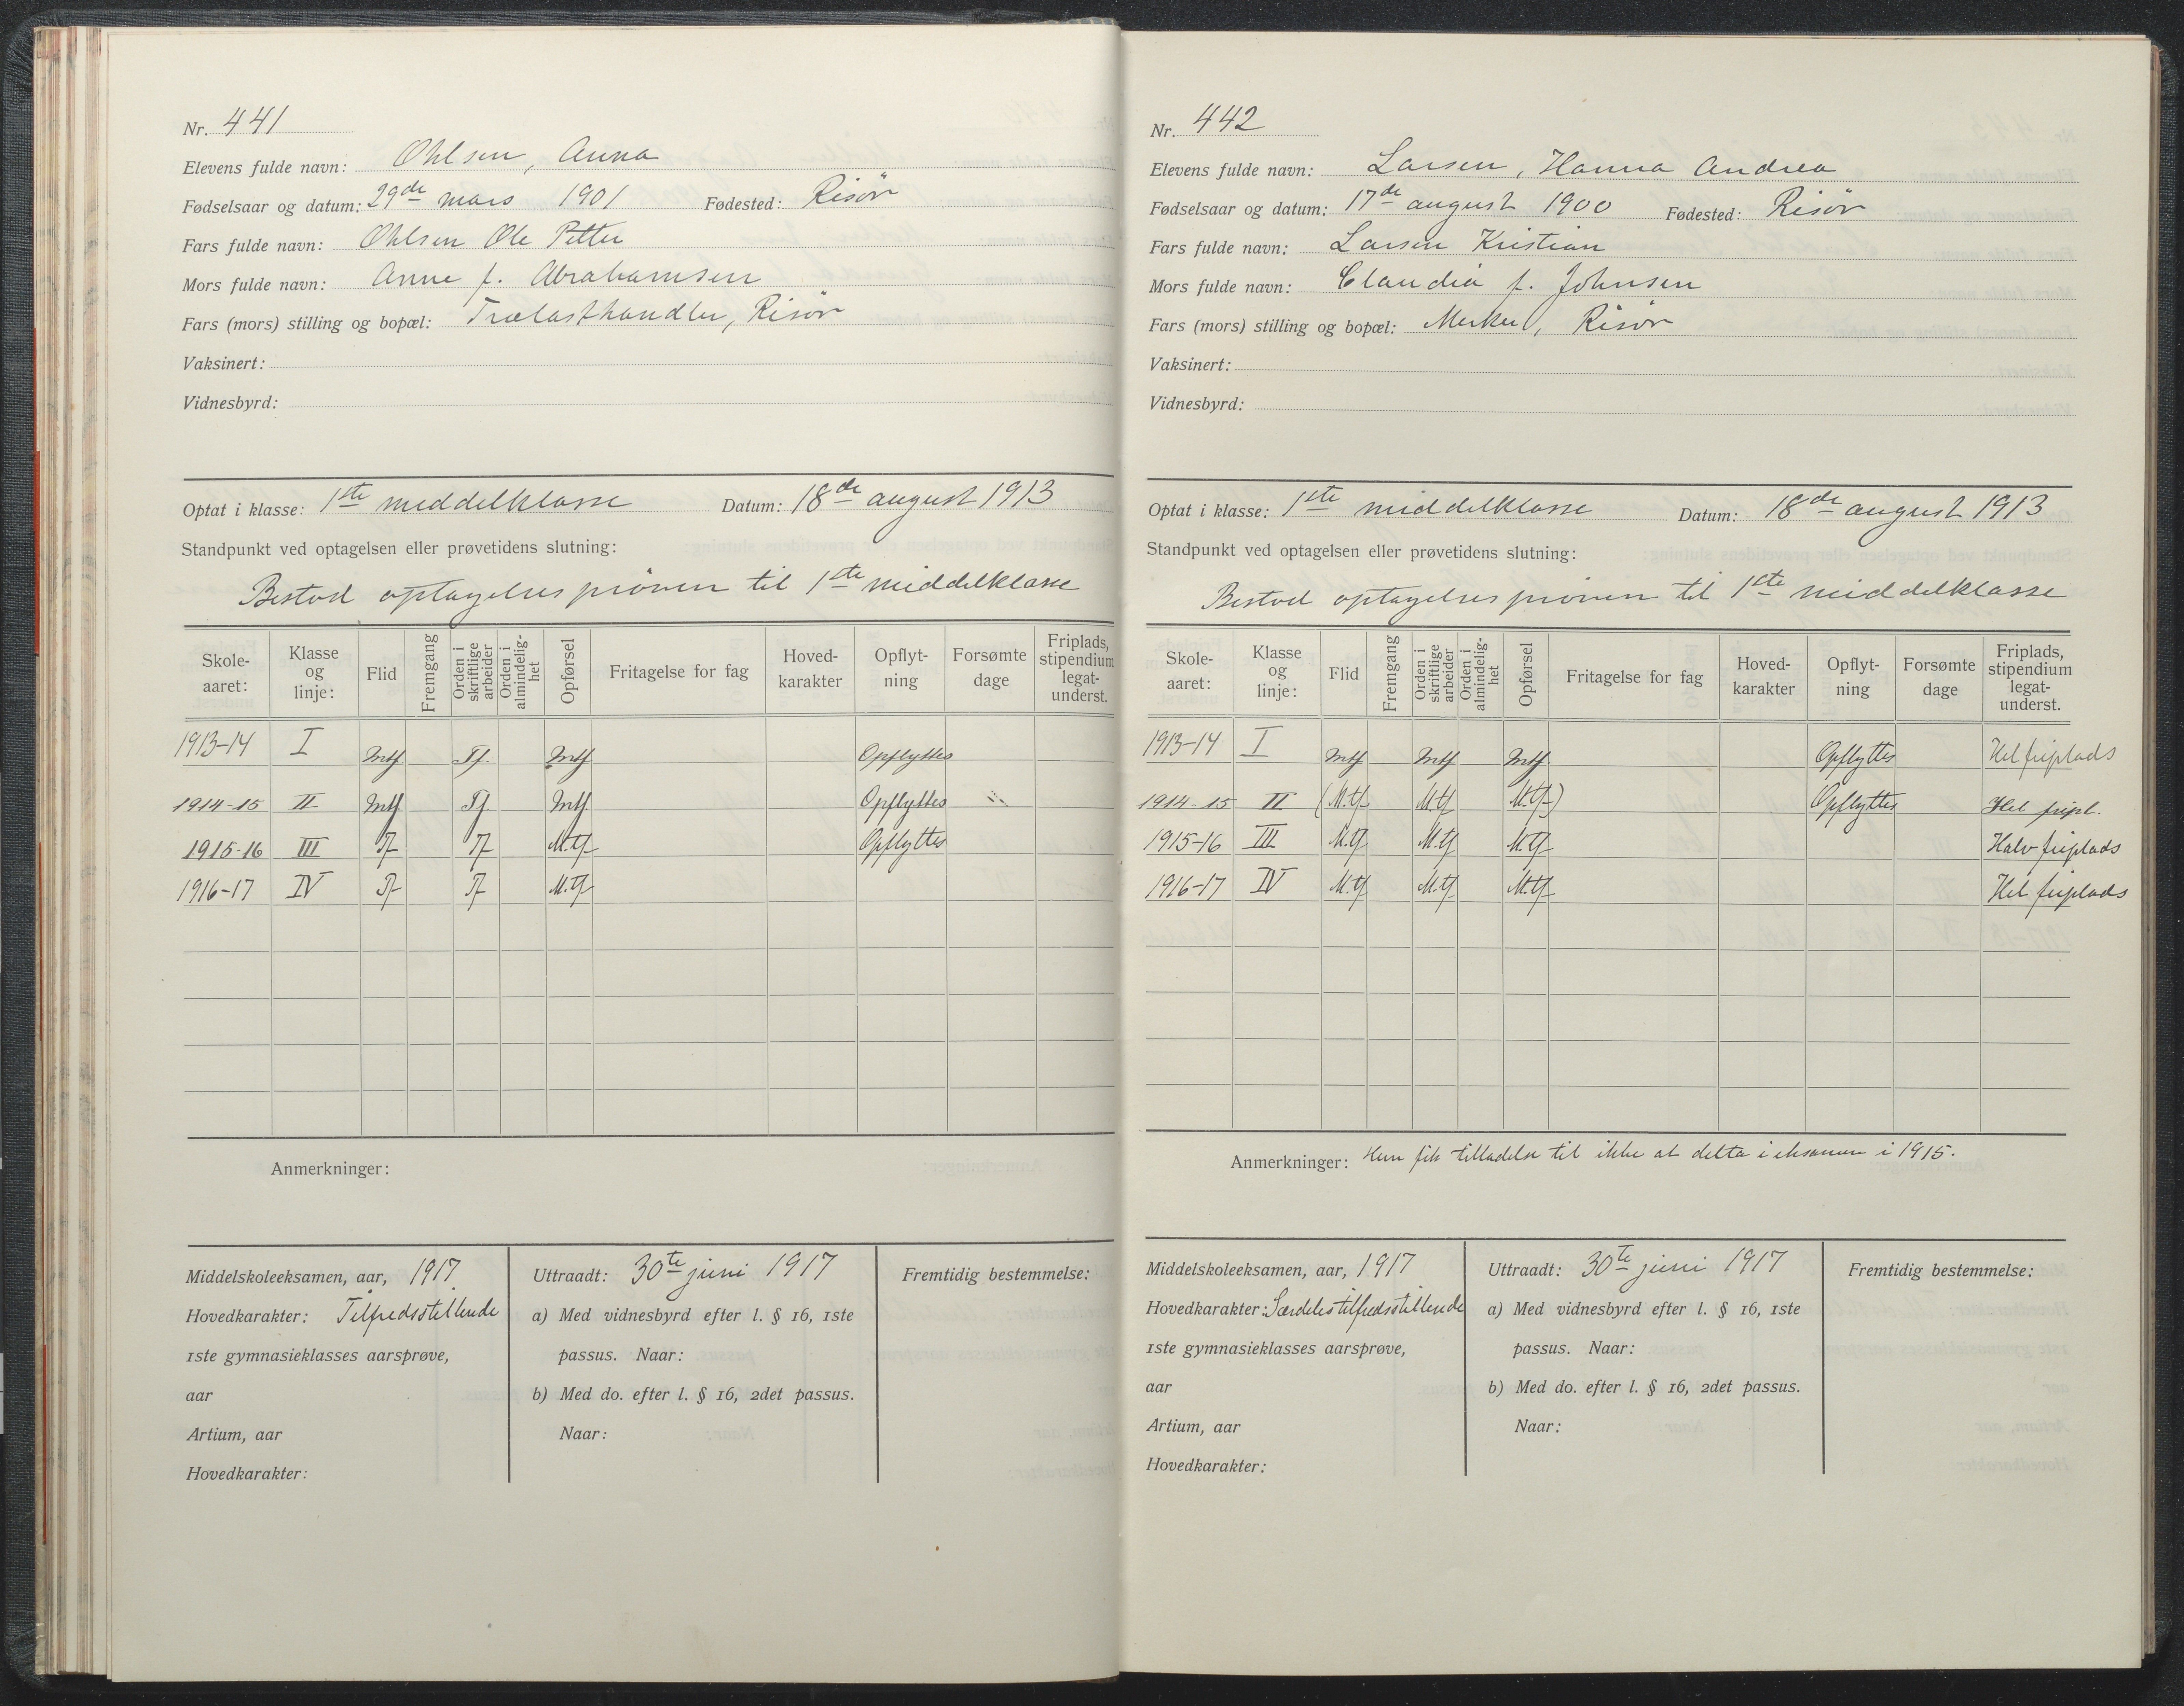 Nr. 441
Elevens fulde navn: Ohlsen, Anna
Fødselsaar og datum: 29de mars 1901 Fødested: Risör
Fars fulde navn: Ohlsen Ole Petter
Mors fulde navn: Anne f. Abrahamsen
Fars (mors) stilling og bopæl: Trælasthandler, Risör
Vaksinert:
Vidnesbyrd:
Optat i klasse: 1ste middelklasse Datum: 18de august 1913
Standpunkt ved optagelsen eller prøvetidens slutning:
Bestod optagelsespröven til 1ste middelklasse
Skoleaaret: Klasse og linje: Flid Fremgang Orden i skriftlige arbeider Orden i almindelighet Opførsel Fritagelse for fag Hovedkarakter Opflytning Forsømte dage Friplads, stipendium legatunderst.
1913-14 I Mtf Tf. Mtf Opflyttes
1914-15 II Mtf Tf. Mtf Opflyttes
1915-16 III Tf Tf M.tf Opflyttes
1916-17 IV Tf Tf M.tf
Anmerkninger:
Middelskoleeksamen, aar, 1917 Uttraadt: 30te juni 1917 Fremtidig bestemmelse:
Hovedkarakter: Tilfredsstillende a) Med vidnesbyrd efter l. § 16, 1ste
1ste gymnasieklasses aarsprøve, passus. Naar:
aar b) Med do. efter l. § 16, 2det passus.
Artium, aar Naar:
Hovedkarakter:
Nr. 442
Elevens fulde navn: Larsen, Hanna Andrea
Fødselsaar og datum: 17de august 1900 Fødested: Risör
Fars fulde navn: Larsen Kristian
Mors fulde navn: Claudia f. Johnsen
Fars (mors) stilling og bopæl: Merker, Risör
Vaksinert:
Vidnesbyrd:
Optat i klasse: 1ste middelklasse Datum: 18de august 1913
Standpunkt ved optagelsen eller prøvetidens slutning:
Bestod optagelsespröven til 1ste middelklasse
Skoleaaret: Klasse og linje: Flid Fremgang Orden i skriftlige arbeider Orden i almindelighet Opførsel Fritagelse for fag Hovedkarakter Opflytning Forsømte dage Friplads, stipendium legatunderst.
1913-14 I Mtf Mtf Mtf Opflyttes Hel friplads
1914-15 II (M.tf. M.tf M.tf.) Opflyttes Hel fripl.
1915-16 III M.tf M.tf M.tf Halv friplads
1916-17 IV M.tf M.tf M.tf Hel friplads
Anmerkninger: Hun fik tilladelse til ikke at delta i eksamen i 1915.
Middelskoleeksamen, aar, 1917 Uttraadt: 30te juni 1917 Fremtidig bestemmelse:
Hovedkarakter: Særdeles tilfredsstillende a) Med vidnesbyrd efter l. § 16, 1ste
1ste gymnasieklasses aarsprøve, passus. Naar:
aar b) Med do. efter l. § 16, 2det passus.
Artium, aar Naar:
Hovedkarakter: